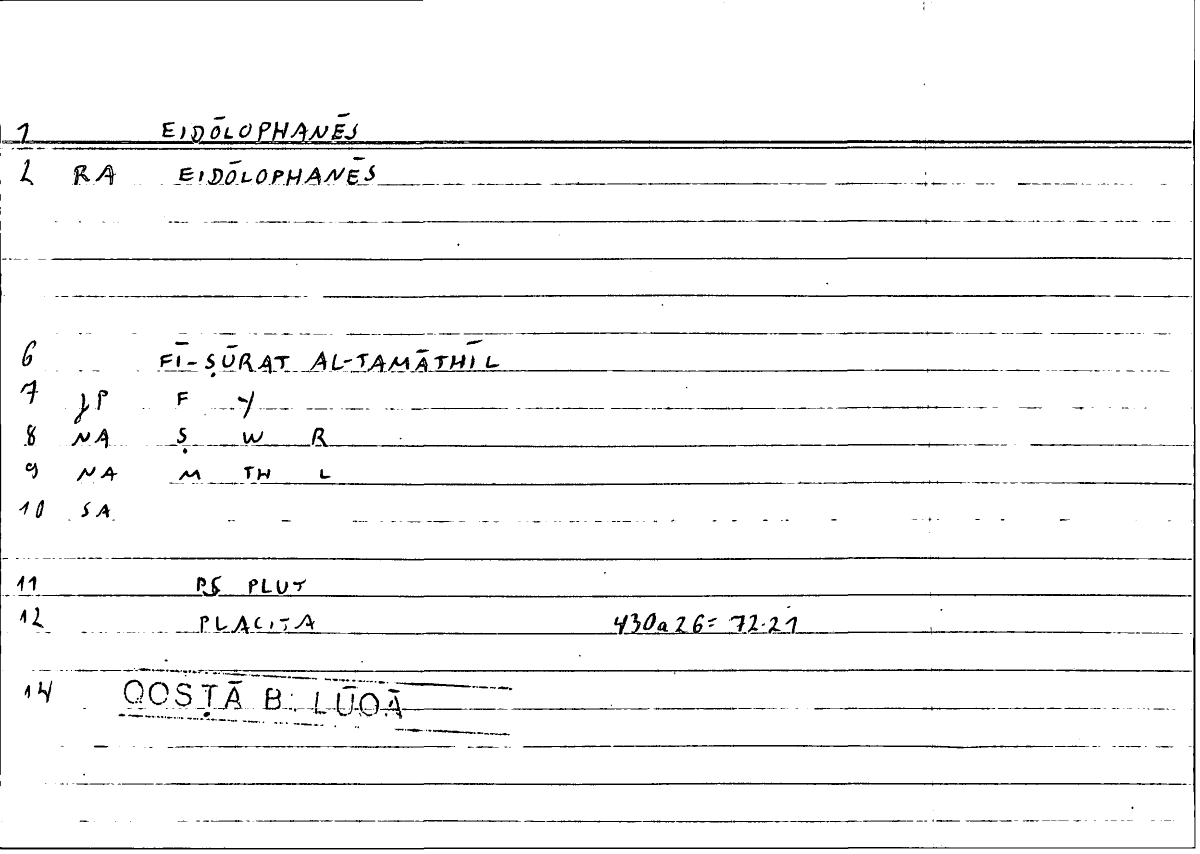 1 EIDŌLOPHANĒS
2 RA EIDŌLOPHANĒS
6 FĪ-ṢŪRAT AL-TAMĀTHĪL
7 JP F Y
8 NA Ṣ W R
9 NA M TH L
10 SA
11 PS PLUT
12 PLACITA 430a26= 72.21
14 QOSṬĀ B. LŪQĀ